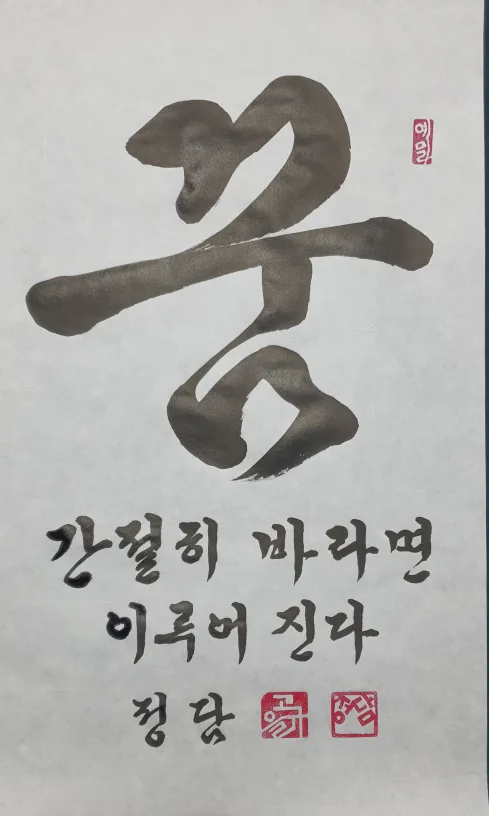 꿈
예밀
간절히 바라면
이루어 진다
정담